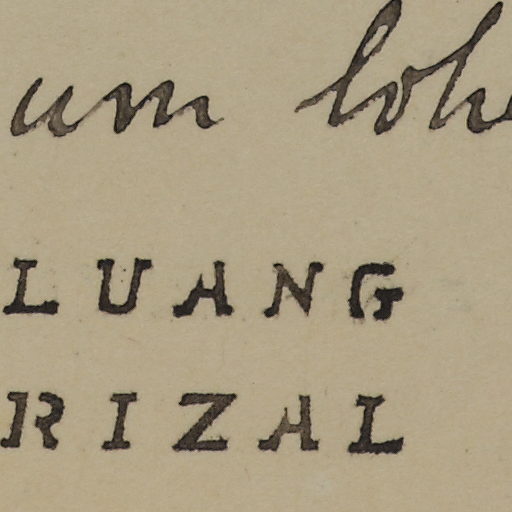 um loh
LUANG
RIZAL